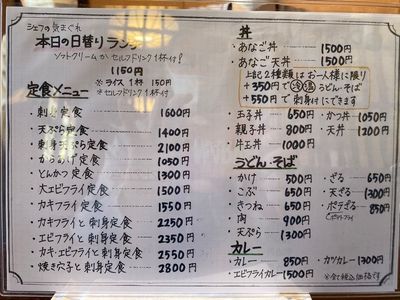 シェフの気まぐれ
本日の日替りランチ
ソフトクリームか セルフドリンク1杯付!
1150円
※ライス 1杯 150円
※セルフドリンク1杯付
定食メニュー
・刺身定食 1600円
・天ぷら定食 1400円
・刺身天ぷら定食 2100円
・からあげ定食 1050円
・とんかつ定食 1300円
・大エビフライ定食 1500円
・カキフライ定食 1550円
・カキフライと刺身定食 2250円
・エビフライと刺身定食 2350円
・カキ・エビフライ定食 2550円
・焼きカキと刺身定食 2800円
丼
・あなご丼 1500円
・あなご天丼 1500円
上記2種類はお一人様に限り
+350円で 冷温 うどん・そば
+550円で 刺身付にできます
・玉子丼 650円 ・かつ丼 1050円
・親子丼 800円 ・天丼 1200円
・牛玉丼 1000円
うどん・そば
・かけ 500円 ・ざる 650円
・こぶ 650円 ・天ざる 1300円
・きつね 650円 ・ポテざる 850円
(ポテトフライ)
・肉 900円
・天ぷら 1300円
カレー
・カレー 850円 ・カツカレー 1300円
・エビフライカレー 1500円 ※全て税込価格です